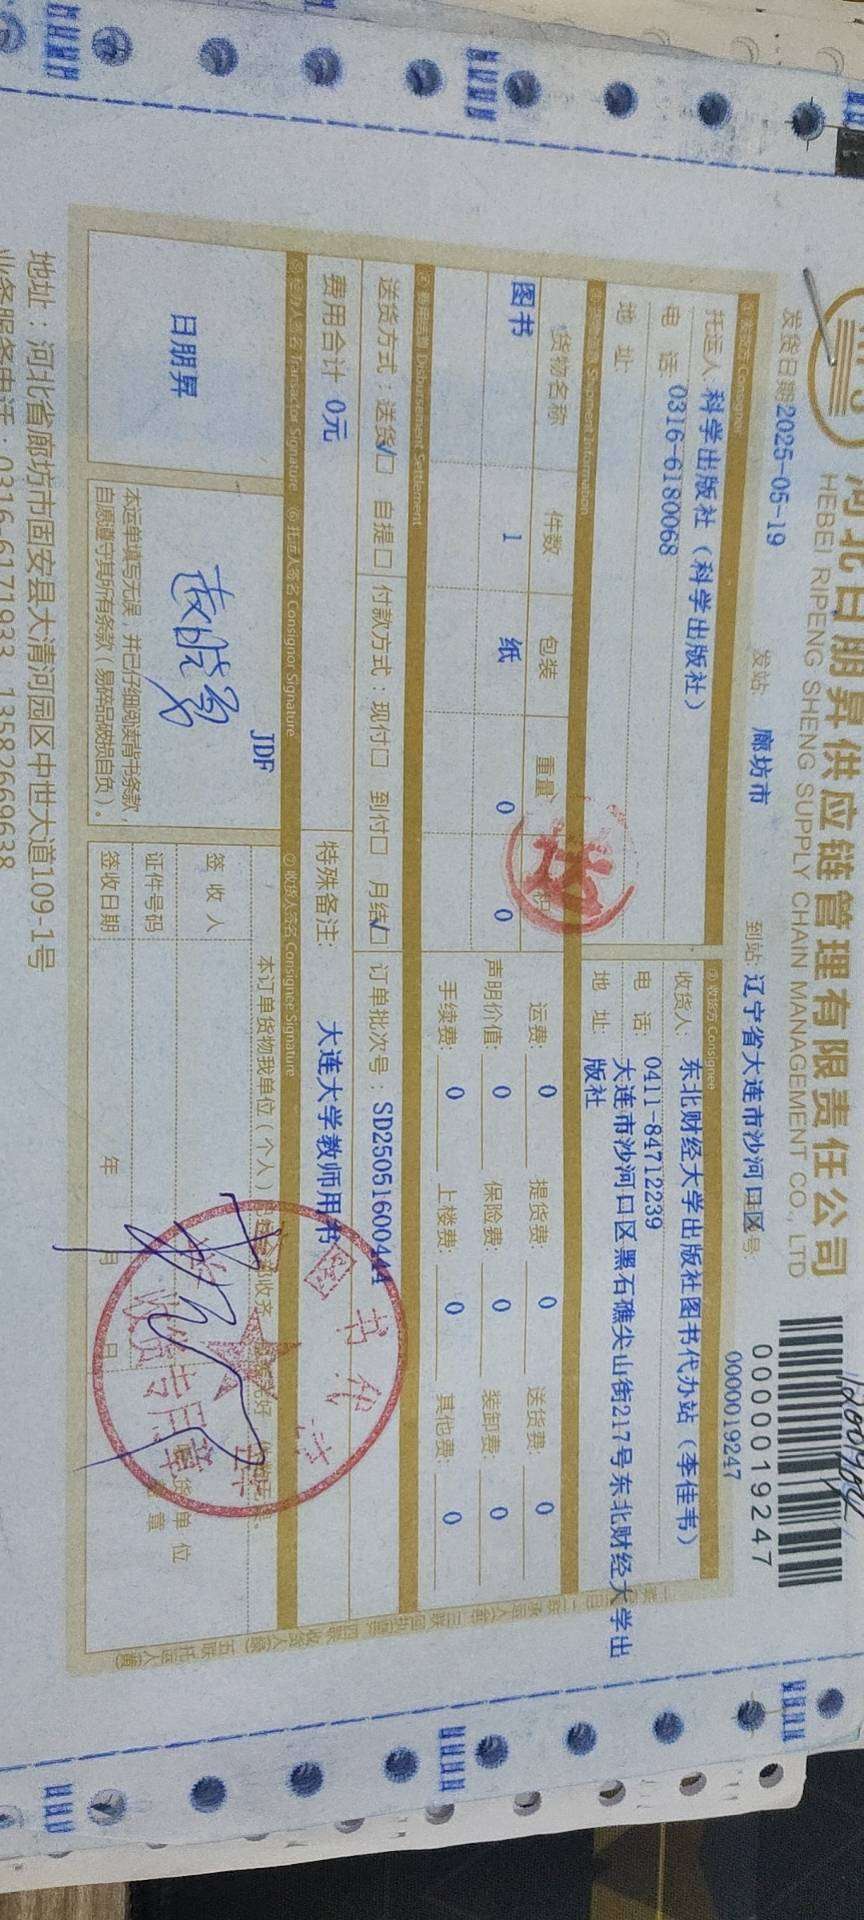 河北日朋昇供应链管理有限责任公司
HEBEI RIPENG SHENG SUPPLY CHAIN MANAGEMENT CO., LTD
0000019247
0000019247
发货日期 2025-05-19 发站 廊坊市 到站: 辽宁省大连市沙河口区 号:
托运人 科学出版社（科学出版社）
电 话 0316-6180068
地 址
③收货方 Consignee
收货人: 东北财经大学出版社图书代办站（李佳韦）
电 话: 0411-84712239
地 址: 大连市沙河口区黑石礁尖山街217号东北财经大学出版社
Shipment Information
货物名称 件数 包装 重量 积
图书 1 纸 0 0
送
运费: 0 提货费: 0 送货费: 0
声明价值: 0 保险费: 0 装卸费: 0
手续费: 0 上楼费: 0 其他费: 0
费用结算 Disbursement Settlement
送货方式: 送货☑ 自提□ 付款方式: 现付□ 到付□ 月结☑ 订单批次号: SD25051600444
费用合计 0元 特殊备注: 大连大学教师用书
⑤经办人签名 Transactor Signature ⑥托运人签名 Consignor Signature ⑦收货人签名 Consignee Signature
日朋昇
JDF
本运单填写无误，并已仔细阅读背书条款，
自愿遵守其所有条款（易碎品破损自负）。
本订单货物我单位（个人）
签收人
证件号码
签收日期 年 月 日
图书代办站
收货专用章
地址：河北省廊坊市固安县大清河园区中世大道109-1号
业务服务电话：0316-6171933 13582669638